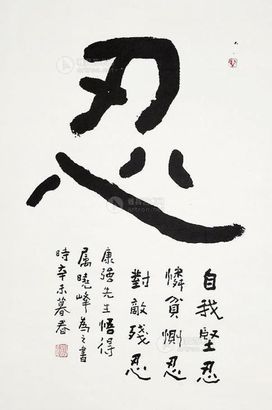 忍
自我堅忍
憐貧惻忍
對敵殘忍
康強先生悟得
屬曉峰為之書
時辛未暮春